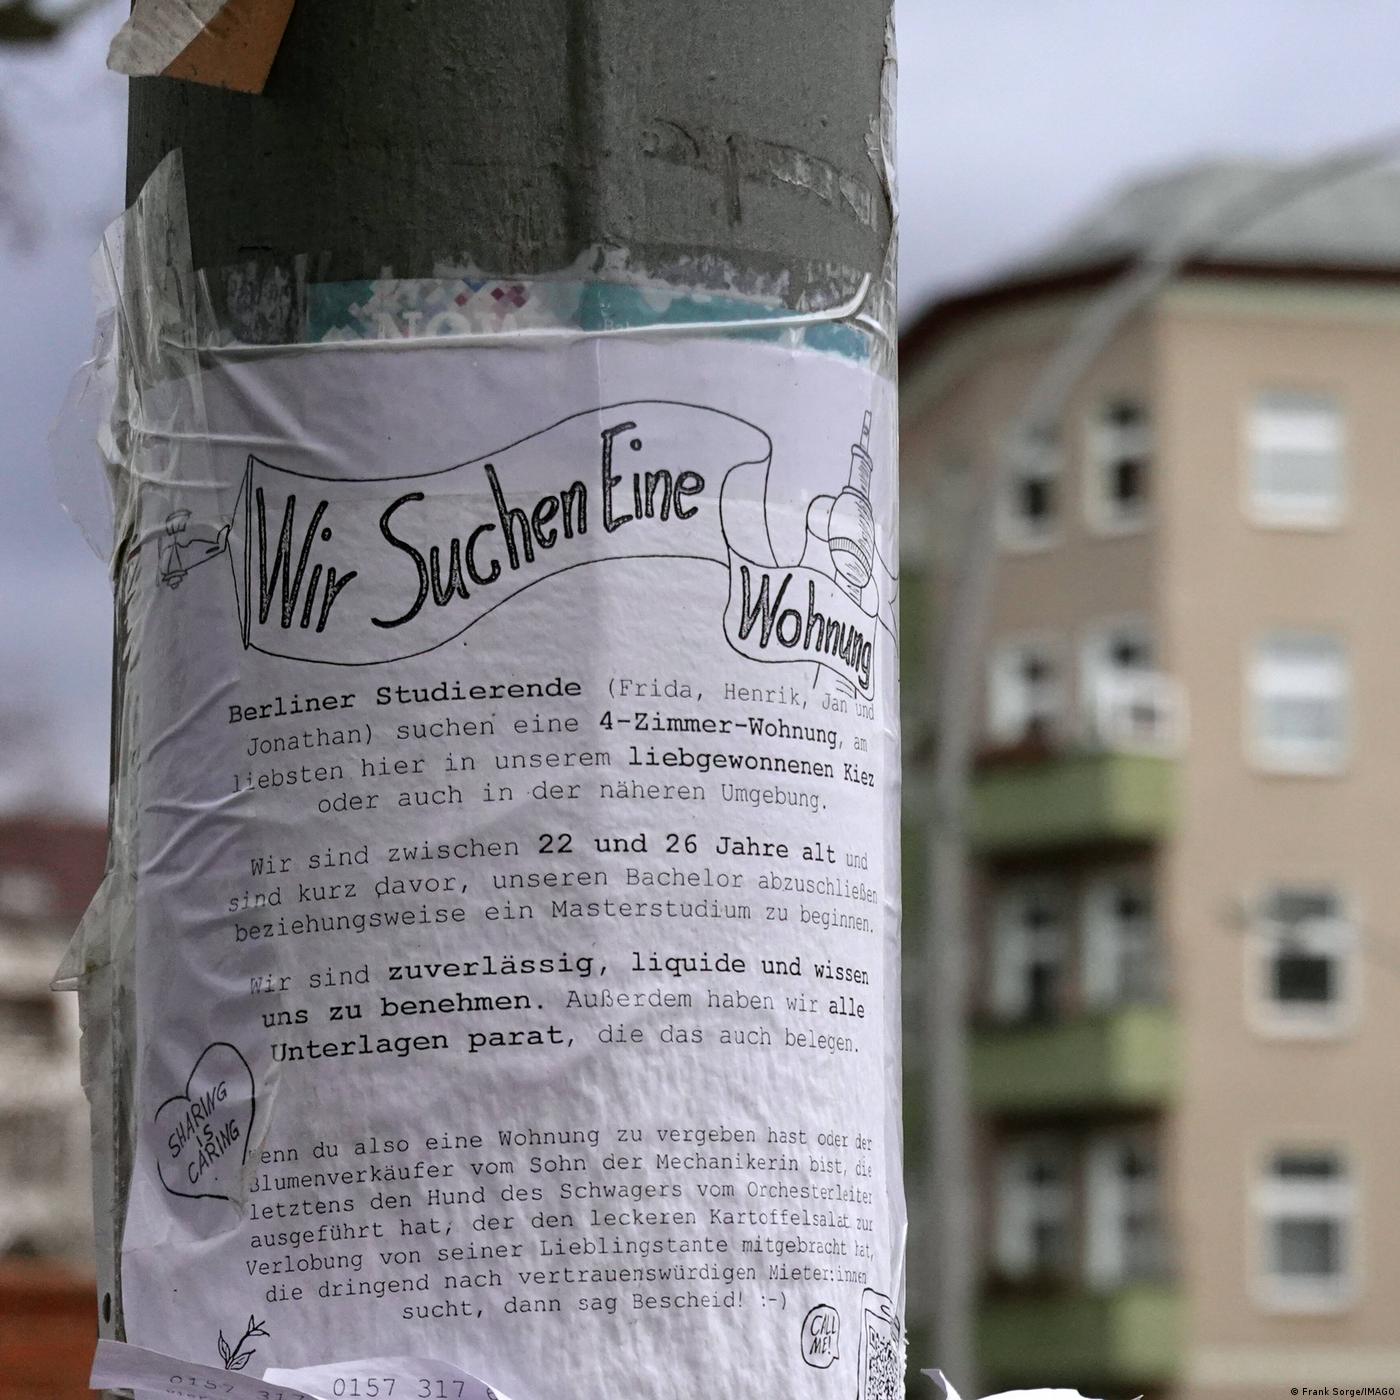 Wir Suchen Eine
Wohnung
Berliner Studierende (Frida, Henrik, Jan und
Jonathan) suchen eine 4-Zimmer-Wohnung, am
liebsten hier in unserem liebgewonnenen Kiez
oder auch in der näheren Umgebung.
Wir sind zwischen 22 und 26 Jahre alt und
sind kurz davor, unseren Bachelor abzuschließen
beziehungsweise ein Masterstudium zu beginnen.
Wir sind zuverlässig, liquide und wissen
uns zu benehmen. Außerdem haben wir alle
Unterlagen parat, die das auch belegen.
SHARING
IS
CARING
Wenn du also eine Wohnung zu vergeben hast oder der
Blumenverkäufer vom Sohn der Mechanikerin bist, die
letztens den Hund des Schwagers vom Orchesterleiter
ausgeführt hat, der den leckeren Kartoffelsalat zur
Verlobung von seiner Lieblingstante mitgebracht hat,
die dringend nach vertrauenswürdigen Mieter:innen
sucht, dann sag Bescheid! :-)
CALL
ME!
0157 317
0157 317
© Frank Sorge/IMAGO